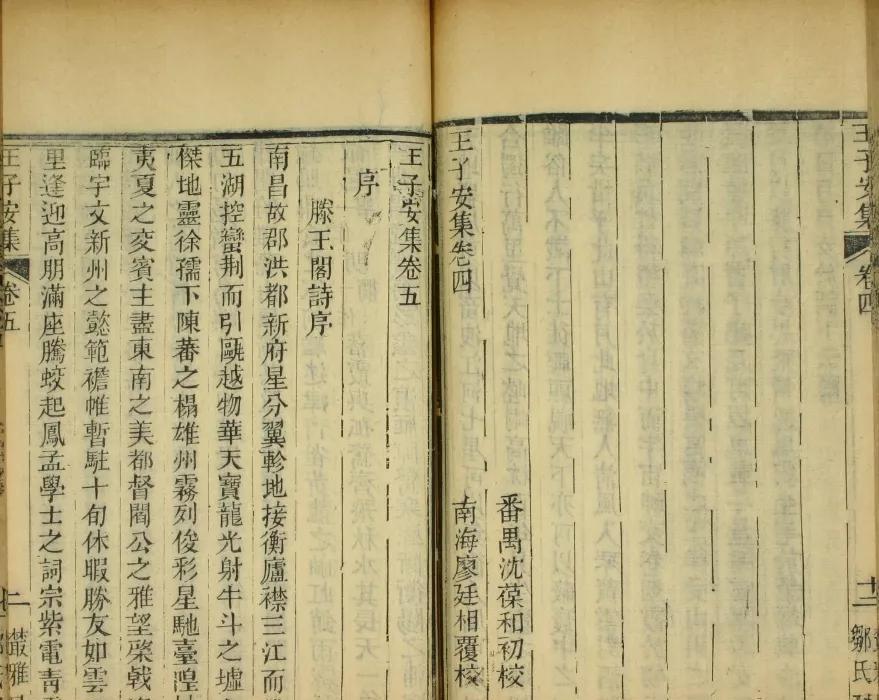 王子安集
卷四
十二
鄒氏
王子安集卷四
番禺沈葆和初校
南海廖廷相覆校
王子安集卷五
序
滕王閣詩序
南昌故郡洪都新府星分翼軫地接衡廬襟三江而
五湖控蠻荆而引甌越物華天寶龍光射牛斗之墟
傑地靈徐孺下陳蕃之榻雄州霧列俊彩星馳臺隍
夷夏之交賓主盡東南之美都督閻公之雅望棨戟
臨宇文新州之懿範襜帷暫駐十旬休暇勝友如雲
里逢迎高朋滿座騰蛟起鳳孟學士之詞宗紫電青
王子安集
卷五
一
叢雅